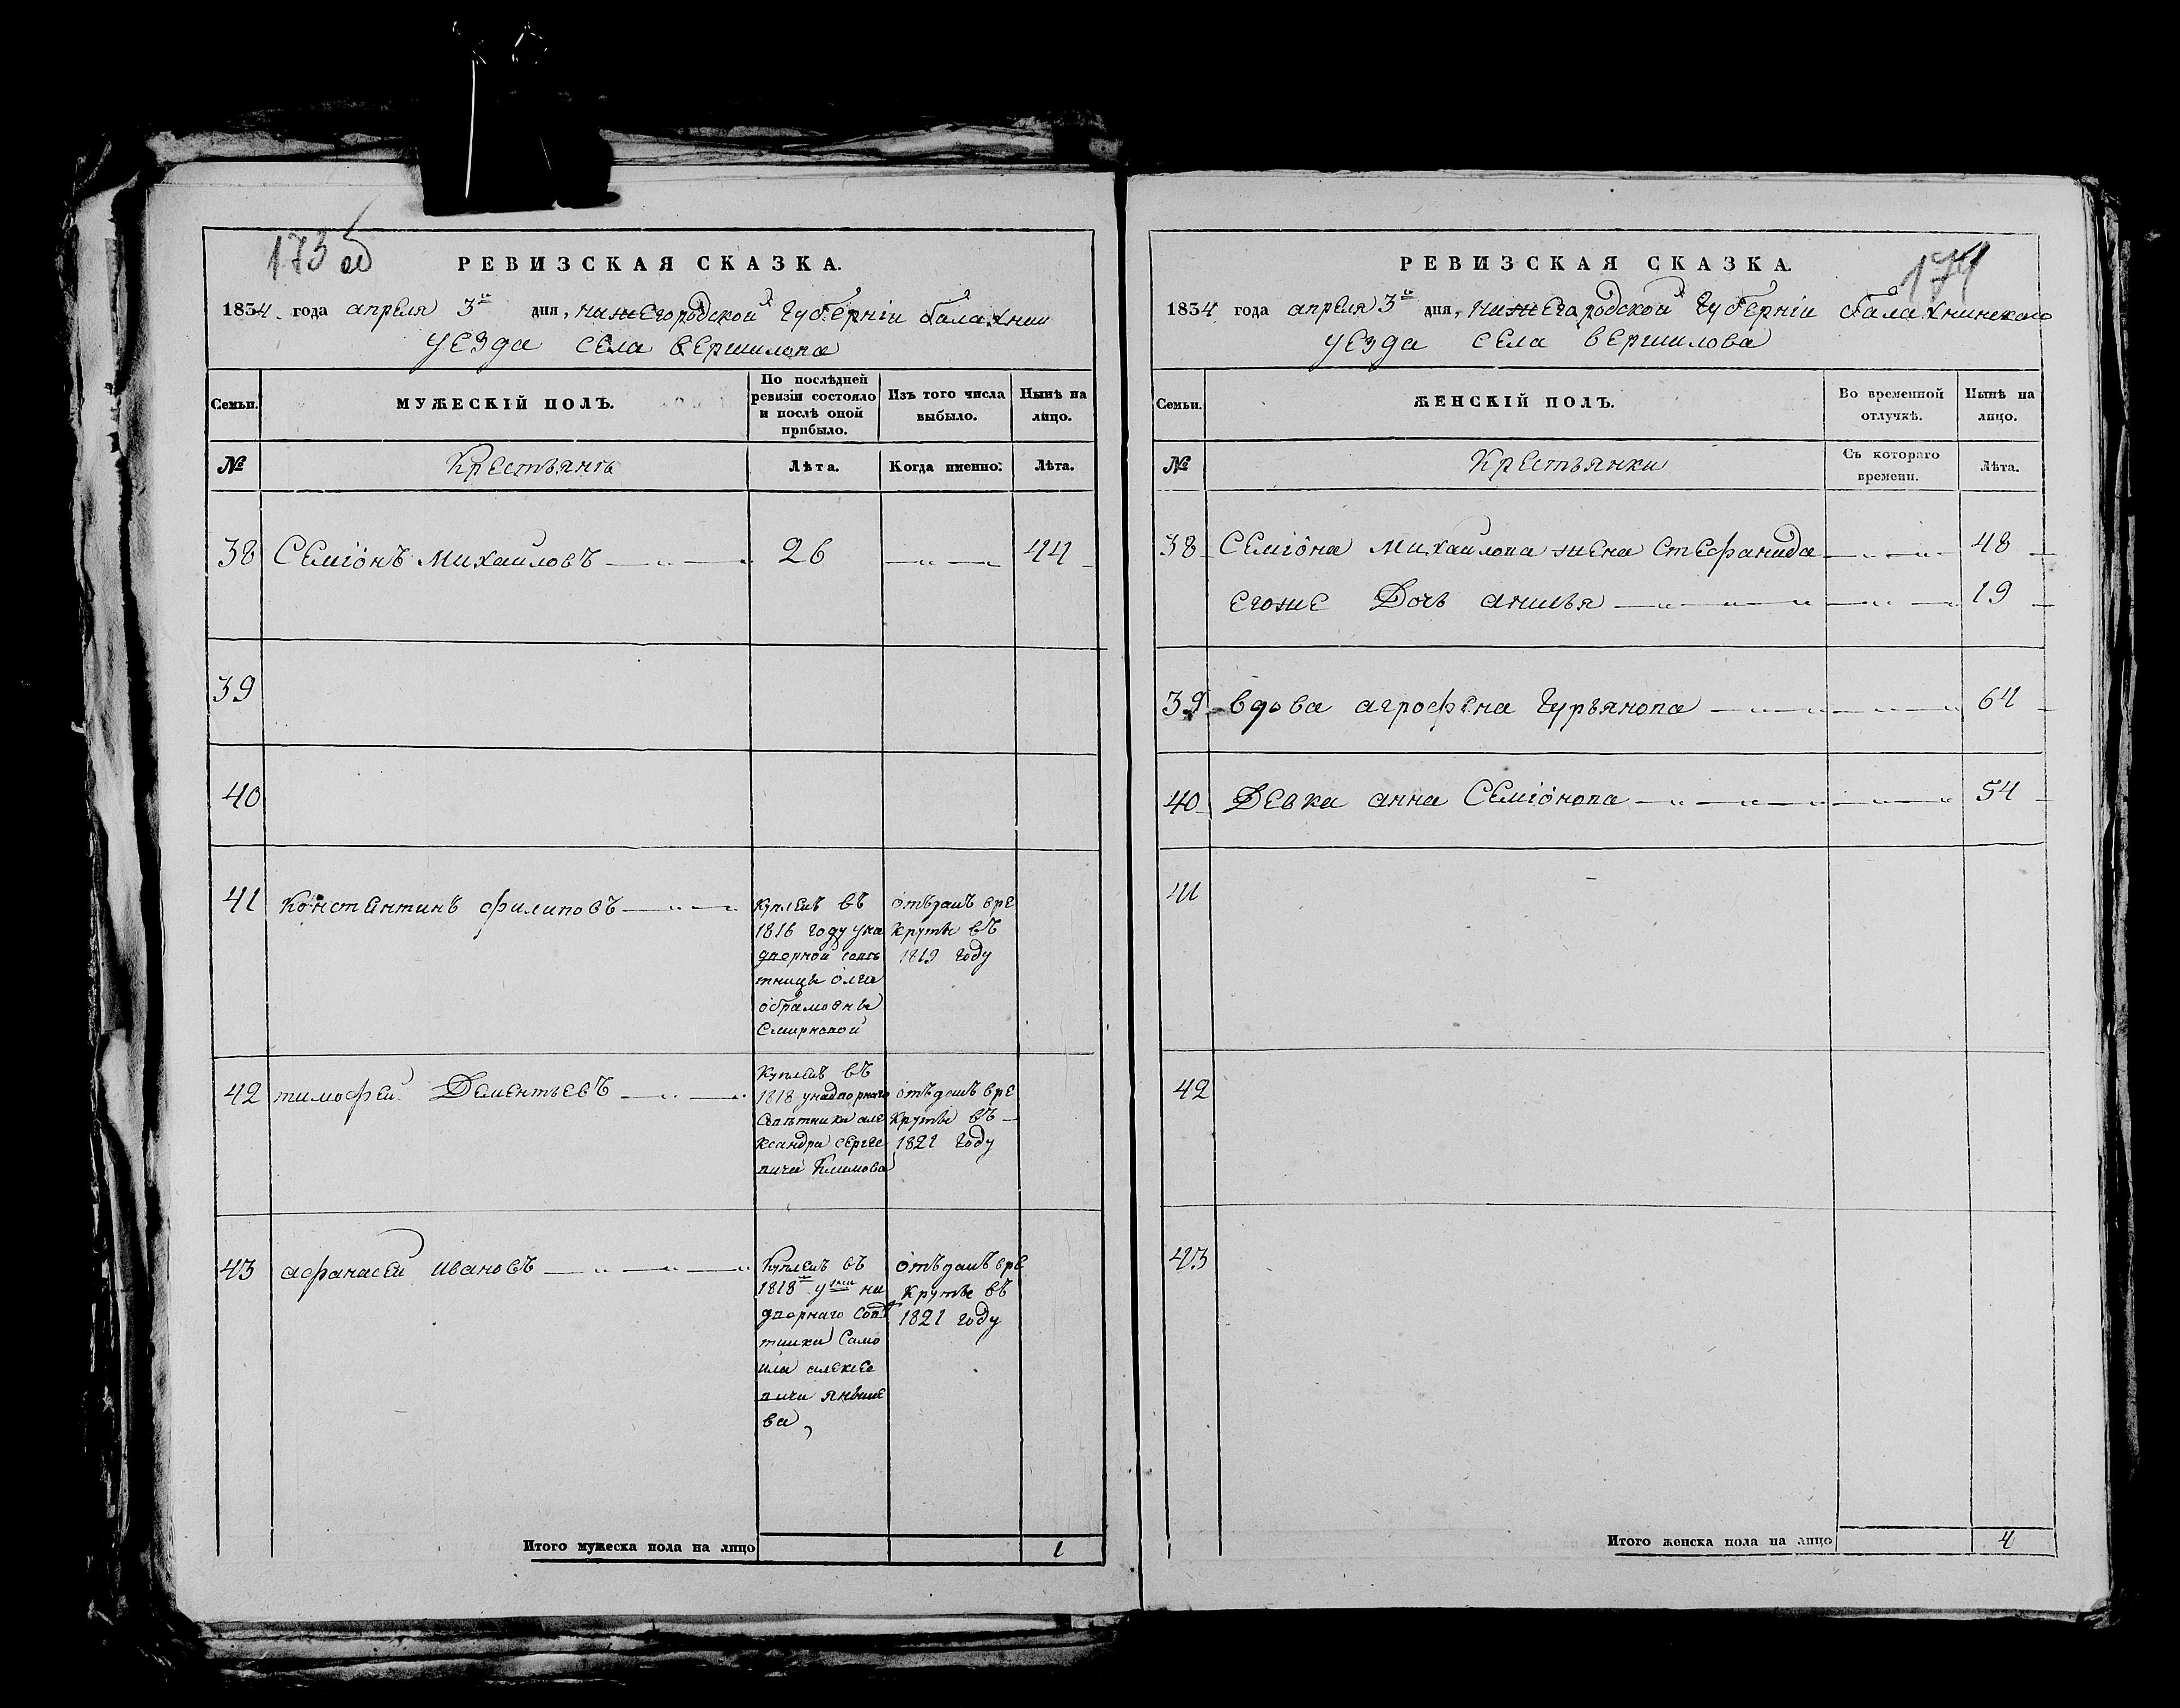 173 об
РЕВИЗСКАЯ СКАЗКА.
1834 года апреля 3го дня, нижегородской губерніи балахнин
уезда села вершилова
Семьи. МУЖЕСКІЙ ПОЛЪ. По послѣдней ревизіи состояло и послѣ оной прибыло. Изъ того числа выбыло. Нынѣ на лицо.
№ Крестьянъ Лѣта. Когда именно. Лѣта.
38 Семіонъ михайловъ 26 44
39
40
41 Константинъ филиповъ
купленъ въ
1816 году уна
дворной совѣ
тницы олги
обрамовны
Смирновой
отъданъ вре
круты въ
1819 году
42 тимофей Дементьевъ
Купленъ въ
1818 унадворнаго
Совѣтника але
ксандра сергее
вича Климова
отъданъ вре
круты въ
1821 году
43 афанасей ивановъ
Купленъ въ
1818 у на
дворнаго совѣ
тника Само
ила алексее
вича
ва,
отъданъ вре
круты въ
1821 году
Итого мужеска пола на лицо 1
174
РЕВИЗСКАЯ СКАЗКА.
1834 года апреля 3го дня, нижегородской губерніи балахнинскаго
уезда села вершилова
Семьи. ЖЕНСКІЙ ПОЛЪ. Во временной отлучкѣ. Нынѣ на лицо.
№ Крестьянки Съ котораго времени. Лѣта.
38 Семіона михайлова жена стефанида 48
егоже Дочь 19
39 вдова агрофена гурьянова 64
40 Девка анна Семіонова 54
41
42
43
Итого женска пола на лицо 4